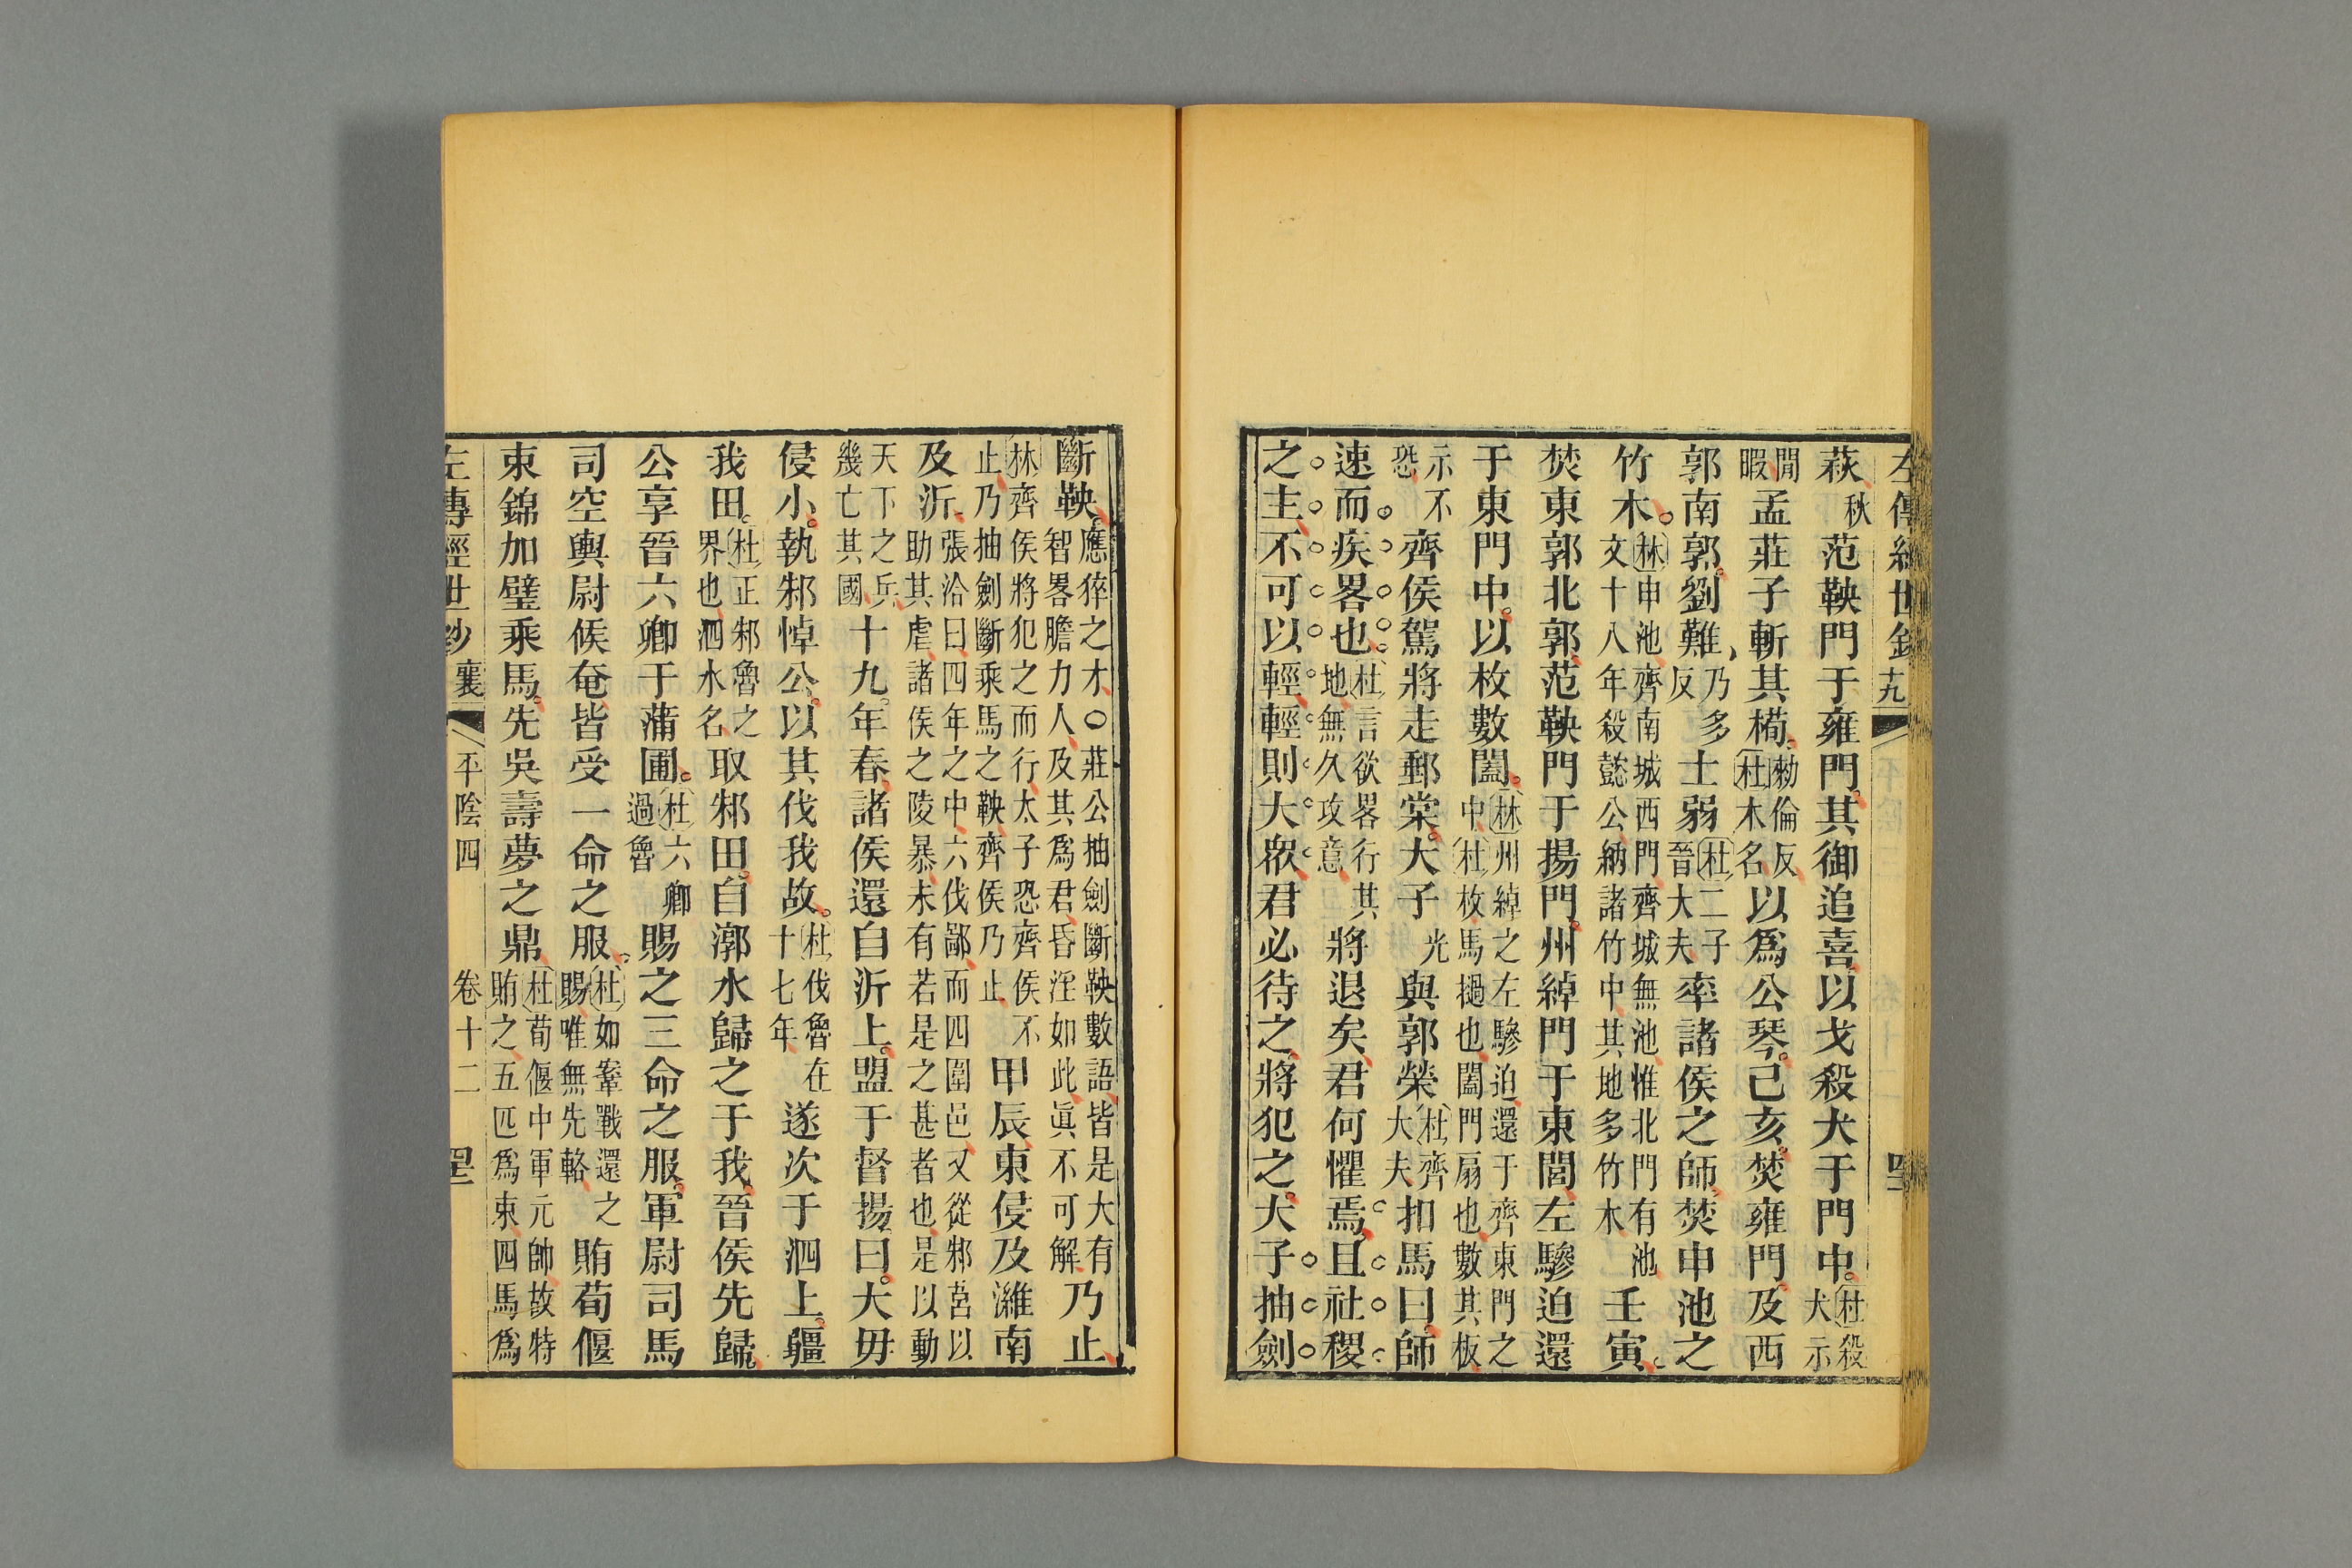 左傳經世鈔十九
萩秋范鞅門于雍門其御追喜以戈殺犬于門中杜殺犬示
閒暇孟莊子斬其橁勑倫反杜木名以爲公琴己亥焚雍門及西
郭南郭劉難乃多反士弱杜二子晉大夫率諸侯之師焚申池之
竹木林申池齊南城西門齊城無池惟北門有池文十八年殺懿公納諸竹中其地多竹木壬寅
焚東郭北郭范鞅門于揚門州綽門于東閭左驂迫還
于東門中以枚數闔林州綽之左驂迫還于齊東門之中杜枚馬檛也闔門扇也數其板
示不恐齊侯駕將走郵棠大子光與郭榮杜齊大夫扣馬曰師
速而疾畧也杜言欲畧行其地無久攻意將退矣君何懼焉且社稷
之主不可以輕輕則大衆君必待之將犯之大子抽劍
斷鞅應猝之才〇莊公抽劍斷鞅數語皆是大有智畧膽力人及其爲君昏淫如此眞不可解乃止
林齊侯將犯之而行太子恐齊侯不止乃抽劍斷乘馬之鞅齊侯乃止甲辰東侵及濰南
及沂張洽曰四年之中六伐鄙而四圍邑又從邾莒以助其虐諸侯之陵暴未有若是之甚者也是以動
天下之兵幾亡其國十九年春諸侯還自沂上盟于督揚曰大毋
侵小執邾悼公以其伐我故杜伐魯在十七年遂次于泗上疆
我田杜正邾魯之界也泗水名取邾田自漷水歸之于我晉侯先歸
公享晉六卿于蒲圃杜六卿過魯賜之三命之服軍尉司馬
司空輿尉候奄皆受一命之服杜如鞌戰還之賜唯無先輅賄荀偃
束錦加璧乘馬先吳壽夢之鼎杜荀偃中軍元帥故特賄之五匹爲束四馬爲
左傳經世鈔 襄 平陰四 卷十二